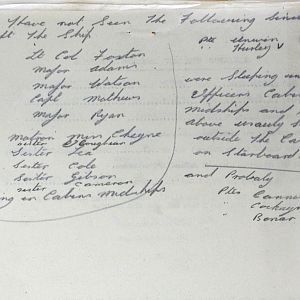 I have not Seen The Following Since
ft The Ship
Lt Col Foxton
Major Adams
Major Watson
Capt Mathews
Major Ryan
Matron Miss Cheyne
Sister
Sister Lea
Sister Cole
Sister Gibson
Sister Cameron
ing in Cabins Midships
Ptes Unwin
" Hurley V
were Sleeping in
Officers Cabin
Midships and
above
outside the Ca
on Starboard
and Probaly
Ptes
" Cockay
" Bonar